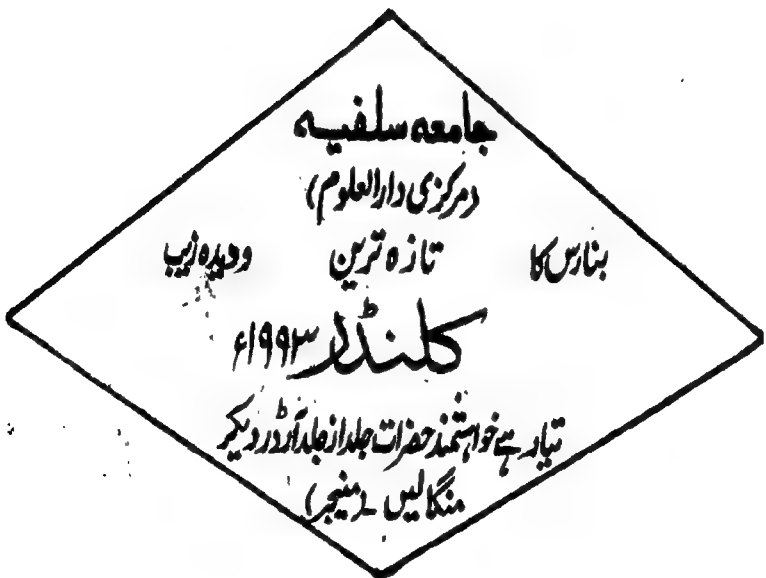 جامعہ سلفیہ
(مرکزی دارالعلوم)
بنارس کا تازہ ترین ودیدہ زیب
کلنڈر ۱۹۹۳ء
تیار ہے خواہشمند حضرات جلد از جلد آرڈر دیکر
منگالیں ۔ (منیجر)